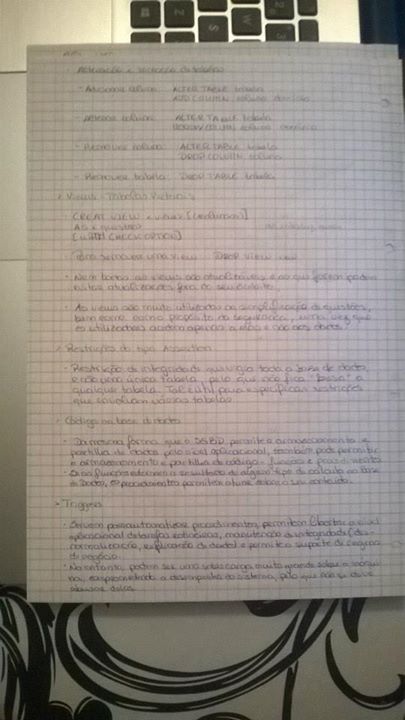 · Alteração e remoção de tabelas
- Adicionar coluna ALTER TABLE tabela
ADD COLUMN coluna domínio
- Alterar coluna ALTER TABLE tabela
COLUMN coluna domínio
- Remover coluna ALTER TABLE tabela
DROP COLUMN coluna
- Remover tabela DROP TABLE tabela
> Views - Tabelas Virtuais
· CREAT VIEW <view> [(<colunas>)]
AS <questão>
[WITH CHECK OPTION]
Para remover uma view DROP VIEW view
· Nem todas as views são atualizáveis, e as que forem podem
· As views são muito utilizadas na simplificação de questões,
bem como como propósito de segurança, uma vez que
os utilizadores acedem apenas a elas e não aos dados.
> Restrições do tipo Assertion
· Restrição de integridade que vigia toda a base de dados,
e não uma única tabela, pelo que não fica "presa" a
qualquer tabela. Tal é útil para especificar restrições
que envolvam várias tabelas
> Código na base de dados
· Da mesma forma que o SGBD permite o armazenamento e
partilha de dados pelo nível aplicacional, também pode permitir
o armazenamento e partilha de código - funções e procedimentos
· Se as funções retornam o resultado de algum tipo de cálculo na Base
de Dados, os procedimentos permitem atuar sobre o seu conteúdo.
> Triggers
· Servem para automatizar procedimentos, permitem libertar o nível
aplicacional de tarefas rotineiras, manutenção de integridade (des-
normalização, replicação de dados) e permite o suporte de regras
de negócio.
· No entanto, podem ser uma sobrecarga muito grande sobre a máqui-
na, comprometendo o desempenho do sistema, pelo que não se deve
abusar delas.